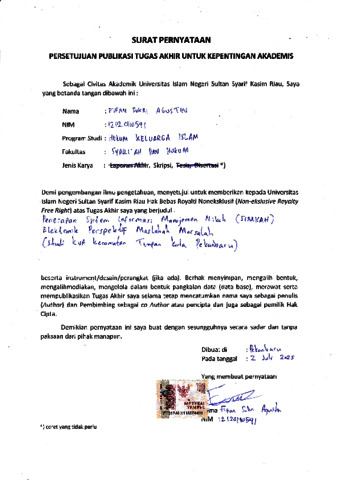 SURAT PERNYATAAN
PERSETUJUAN PUBLIKASI TUGAS AKHIR UNTUK KEPENTINGAN AKADEMIS
Sebagai Civitas Akademik Universitas Islam Negeri Sultan Syarif Kasim Riau, Saya
yang bertanda tangan dibawah ini :
Nama : FIFAN SUKRI AGUSTUN
NIM :
Program Studi : HUKUM KELUARGA ISLAM
Fakultas : SYARI'AH DAN HUKUM
Jenis Karya : Laporan Akhir, Skripsi, Tesis, Disertasi *)
Demi pengembangan ilmu pengetahuan, menyetujui untuk memberikan kepada Universitas
Islam Negeri Sultan Syarif Kasim Riau Hak Bebas Royalti Noneksklusif (Non-ekslusive Royalty
Free Right) atas Tugas Akhir saya yang berjudul :
Penerapan Sistem Informasi Manajemen Nikah (SIMKAH)
Elektronik Perspektif Maslahah Mursalah
(Studi KUA Kecamatan Tampan Kota Pekanbaru)
beserta instrument/desain/perangkat (jika ada). Berhak menyimpan, mengalih bentuk,
mengalihmediakan, mengelola dalam bentuk pangkalan data (data base), merawat serta
mempublikasikan Tugas Akhir saya selama tetap mencatumkan nama saya sebagai penulis
(Author) dan Pembimbing sebagai co Author atau pencipta dan juga sebagai pemilik Hak
Cipta.
Demikian pernyataan ini saya buat dengan sesungguhnya secara sadar dan tanpa
paksaan dari pihak manapun.
Dibuat di : Pekanbaru
Pada tanggal : 2 Juli 2025
Yang membuat pernyataan
METERAI
TEMPEL
Nama : Fifan Sukri Agustun
NIM :
*) coret yang tidak perlu